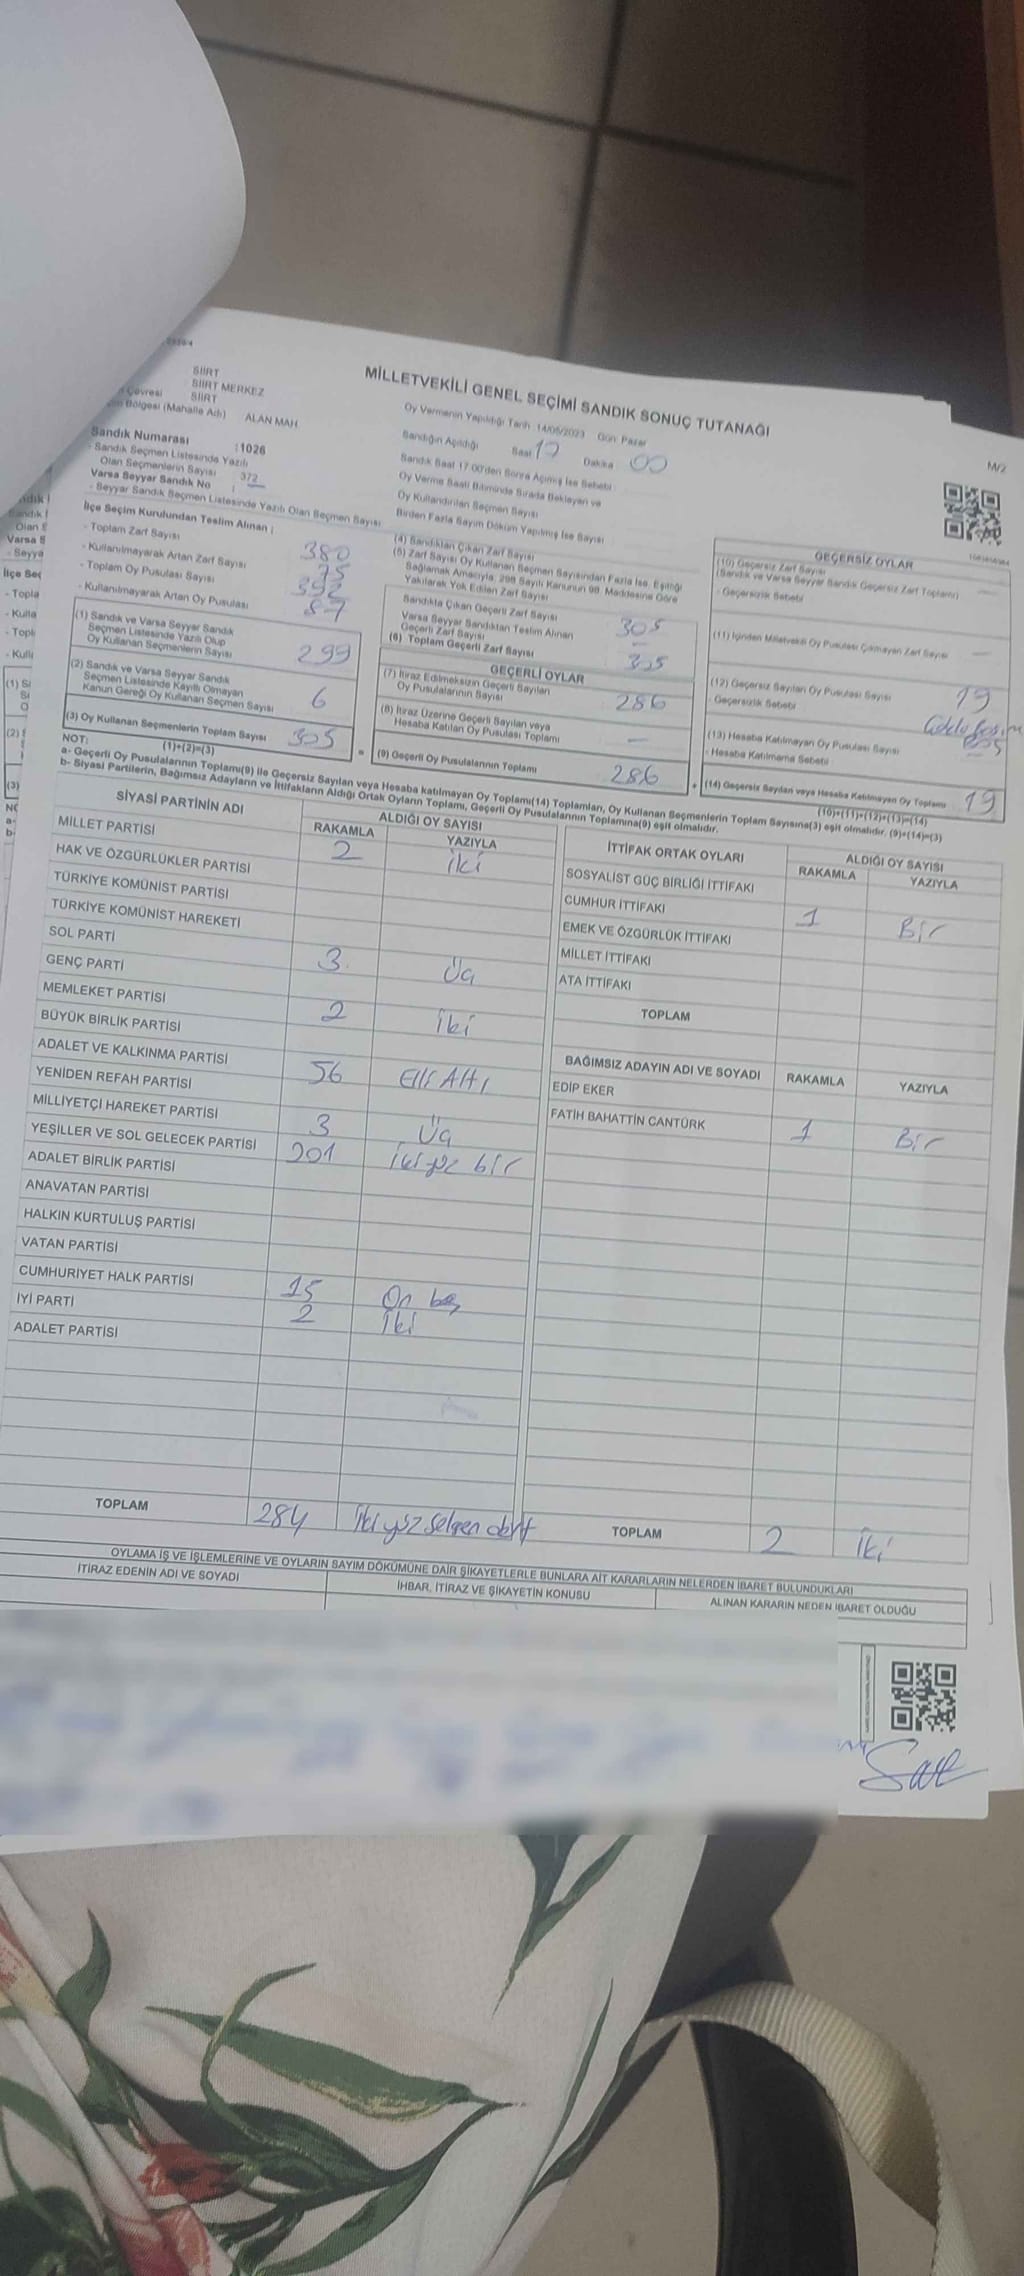 SİİRT
SİİRT MERKEZ
Çevresi SİİRT
Bölgesi (Mahalle Adı) ALAN MAH
MİLLETVEKİLİ GENEL SEÇİMİ SANDIK SONUÇ TUTANAĞI
M/2
Sandık Numarası : 1026
- Sandık Seçmen Listesinde Yazılı
Olan Seçmenlerin Sayısı : 372
Varsa Seyyar Sandık No :
- Seyyar Sandık Seçmen Listesinde Yazılı Olan Seçmen Sayısı
Oy Vermenin Yapıldığı Tarih 14/05/2023 Gün: Pazar
Sandığın Açıldığı Saat 17 Dakika 00
Sandık Saat 17:00'den Sonra Açılmış İse Sebebi
Oy Verme Saati Bitiminde Sırada Bekleyen ve
Oy Kullandırılan Seçmen Sayısı
Birden Fazla Sayım Döküm Yapılmış İse Sayısı
İlçe Seçim Kurulundan Teslim Alınan ;
- Toplam Zarf Sayısı 380
- Kullanılmayarak Artan Zarf Sayısı 75
- Toplam Oy Pusulası Sayısı 392
- Kullanılmayarak Artan Oy Pusulası 87
(1) Sandık ve Varsa Seyyar Sandık
Seçmen Listesinde Yazılı Olup
Oy Kullanan Seçmenlerin Sayısı 299
(2) Sandık ve Varsa Seyyar Sandık
Seçmen Listesinde Kayıtlı Olmayan
Kanun Gereği Oy Kullanan Seçmen Sayısı 6
(3) Oy Kullanan Seçmenlerin Toplam Sayısı 305
(1)+(2)=(3)
(4) Sandıktan Çıkan Zarf Sayısı
(5) Zarf Sayısı Oy Kullanan Seçmen Sayısından Fazla İse, Eşitliği
Sağlamak Amacıyla, 298 Sayılı Kanunun 98. Maddesine Göre
Yakılarak Yok Edilen Zarf Sayısı
Sandıkta Çıkan Geçerli Zarf Sayısı 305
Varsa Seyyar Sandıktan Teslim Alınan
Geçerli Zarf Sayısı –
(6) Toplam Geçerli Zarf Sayısı 305
GEÇERLİ OYLAR
(7) İtiraz Edilmeksizin Geçerli Sayılan
Oy Pusulalarının Sayısı 286
(8) İtiraz Üzerine Geçerli Sayılan veya
Hesaba Katılan Oy Pusulası Toplamı –
(9) Geçerli Oy Pusulalarının Toplamı 286
GEÇERSİZ OYLAR
(10) Geçersiz Zarf Sayısı –
(Sandık ve Varsa Seyyar Sandık Geçersiz Zarf Toplamı)
- Geçersizlik Sebebi
(11) İçinden Milletvekili Oy Pusulası Çıkmayan Zarf Sayısı –
(12) Geçersiz Sayılan Oy Pusulası Sayısı 19
- Geçersizlik Sebebi
(13) Hesaba Katılmayan Oy Pusulası Sayısı
- Hesaba Katılmama Sebebi
(14) Geçersiz Sayılan veya Hesaba Katılmayan Oy Toplamı 19
(10)+(11)+(12)+(13)=(14)
NOT:
a- Geçerli Oy Pusulalarının Toplamı(9) ile Geçersiz Sayılan veya Hesaba katılmayan Oy Toplamı(14) Toplamları, Oy Kullanan Seçmenlerin Toplam Sayısına(3) eşit olmalıdır. (9)+(14)=(3)
b- Siyasi Partilerin, Bağımsız Adayların ve İttifakların Aldığı Ortak Oyların Toplamı, Geçerli Oy Pusulalarının Toplamına(9) eşit olmalıdır.
SİYASİ PARTİNİN ADI ALDIĞI OY SAYISI
RAKAMLA YAZIYLA
MİLLET PARTİSİ 2 iki
HAK VE ÖZGÜRLÜKLER PARTİSİ
TÜRKİYE KOMÜNİST PARTİSİ
TÜRKİYE KOMÜNİST HAREKETİ
SOL PARTİ 3 Üç
GENÇ PARTİ
MEMLEKET PARTİSİ 2 iki
BÜYÜK BİRLİK PARTİSİ
ADALET VE KALKINMA PARTİSİ 56 Elli Altı
YENİDEN REFAH PARTİSİ
MİLLİYETÇİ HAREKET PARTİSİ 3 Üç
YEŞİLLER VE SOL GELECEK PARTİSİ 201 iki yüz bir
ADALET BİRLİK PARTİSİ
ANAVATAN PARTİSİ
HALKIN KURTULUŞ PARTİSİ
VATAN PARTİSİ
CUMHURİYET HALK PARTİSİ 15 On beş
İYİ PARTİ 2 iki
ADALET PARTİSİ
TOPLAM 284 iki yüz seksen dört
İTTİFAK ORTAK OYLARI ALDIĞI OY SAYISI
RAKAMLA YAZIYLA
SOSYALİST GÜÇ BİRLİĞİ İTTİFAKI
CUMHUR İTTİFAKI 1 Bir
EMEK VE ÖZGÜRLÜK İTTİFAKI
MİLLET İTTİFAKI
ATA İTTİFAKI
TOPLAM
BAĞIMSIZ ADAYIN ADI VE SOYADI RAKAMLA YAZIYLA
EDİP EKER
FATİH BAHATTİN CANTÜRK 1 Bir
TOPLAM 2 iki
OYLAMA İŞ VE İŞLEMLERİNE VE OYLARIN SAYIM DÖKÜMÜNE DAİR ŞİKAYETLERLE BUNLARA AİT KARARLARIN NELERDEN İBARET BULUNDUKLARI
İTİRAZ EDENİN ADI VE SOYADI İHBAR, İTİRAZ VE ŞİKAYETİN KONUSU ALINAN KARARIN NEDEN İBARET OLDUĞU